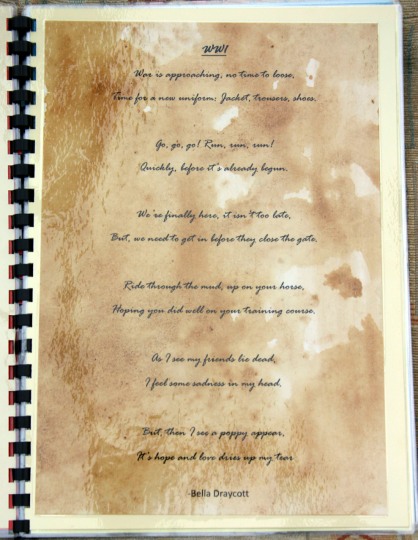 WW1
War is approaching, no time to loose,
Time for a new uniform: Jacket, trousers, shoes.
Go, go, go! Run, run, run!
Quickly, before it's already begun.
We're finally here, it isn't too late,
But, we need to get in before they close the gate.
Ride through the mud, up on your horse,
Hoping you did well on your training course.
As I see my friends lie dead,
I feel some sadness in my head.
But, then I see a poppy appear,
It's hope and love dries up my tear
-Bella Draycott